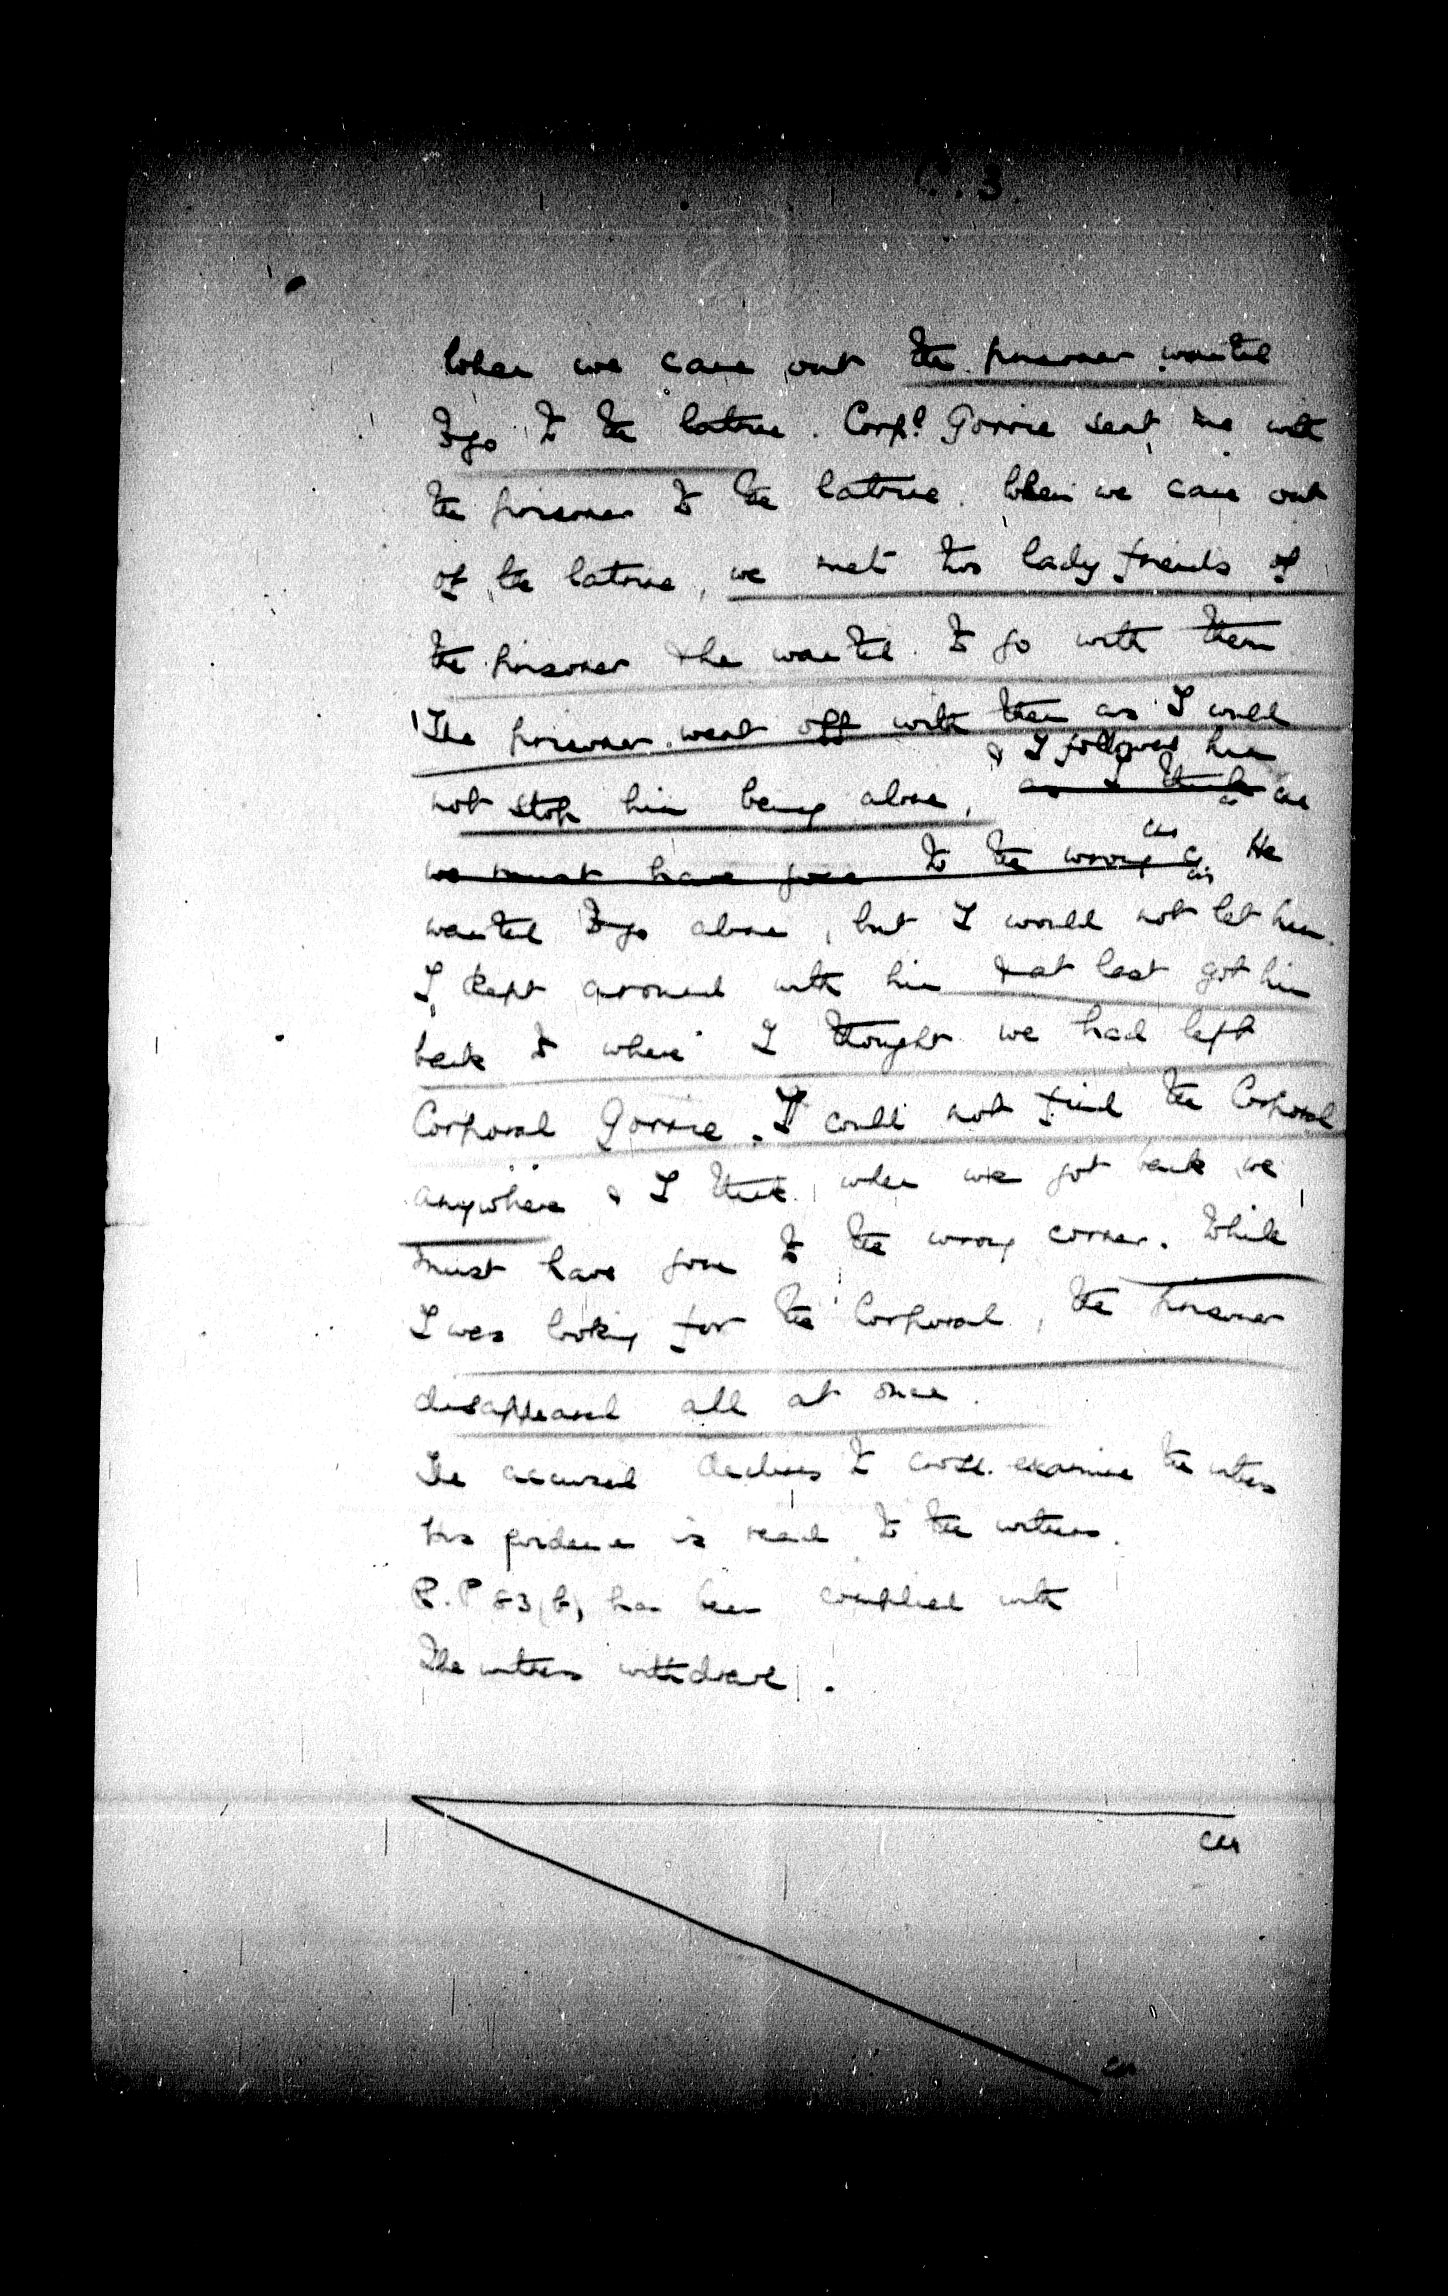 C. 3.
When we came out the prisoner wanted
to go to the latrine. Corpl. Gorrie sent me with
the prisoner to the latrine. When we came out
of the latrine, we met two lady friends of
the prisoner & he wanted to go with them
The prisoner went off with them as I could
& I followed him
not stop him being alone, as I think
we must have gone to the wrong c. He
wanted to go alone, but I would not let him.
I kept around with him & at last got him
back to where I thought we had left
Corporal Gorrie. I could not find the Corporal
anywhere & I think when we got back we
must have gone to the wrong corner. While
I was looking for the Corporal, the prisoner
disappeared all at once.
The accused declines to cross-examine the witness
His evidence is read to the witness.
R.P 83(b) has been complied with
The witness withdraws.